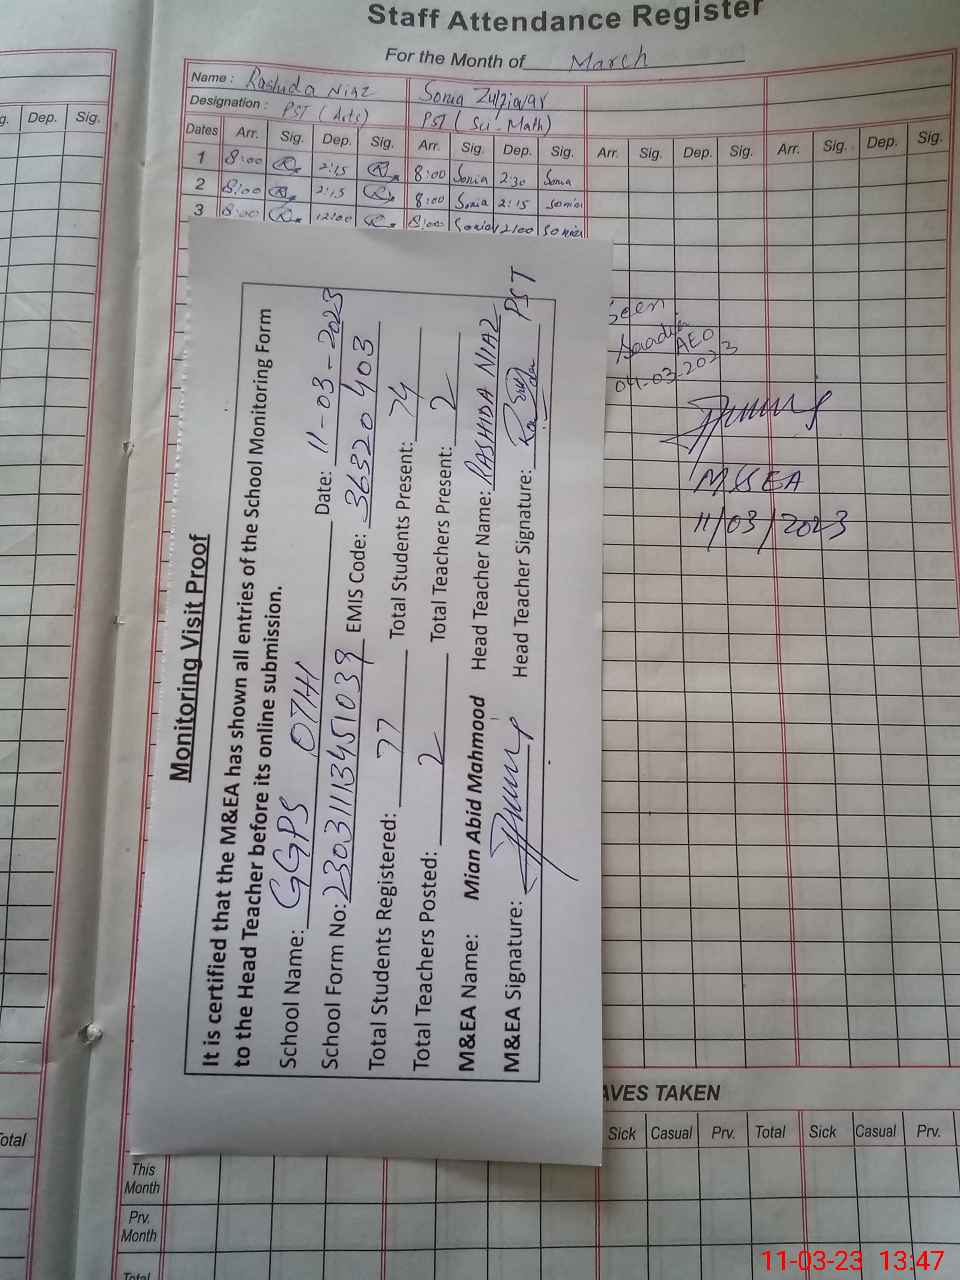 Staff Attendance Register
For the Month of March
Name : Rashida Niaz Sonia
Designation : PST (Arts) PST (Sci-Math)
g. Dep. Sig.
Dates Arr. Sig. Dep. Sig. Arr. Sig. Dep. Sig. Arr. Sig. Dep. Sig. Arr. Sig. Dep. Sig.
1 8:00 2:15 8:00 Sonia 2:30 Sonia
2 8:00 2:15 8:00 Sonia 2:15 Sonia
3 8:00 12:00 8:00 Sonia 12:00 Sonia
Seen
Saadia
AEO
04-03-2023
11/03/2023
Monitoring Visit Proof
It is certified that the M&EA has shown all entries of the School Monitoring Form
to the Head Teacher before its online submission.
School Name: GGPS 07141 Date: 11-03-2023
School Form No: 23031113451039 EMIS Code: 36320403
Total Students Registered: 77 Total Students Present: 74
Total Teachers Posted: 2 Total Teachers Present: 2
M&EA Name: Mian Abid Mahmood Head Teacher Name: RASHIDA NIAZ PST
M&EA Signature: Head Teacher Signature:
AVES TAKEN
Total Sick Casual Prv. Total Sick Casual Prv.
This
Month
Prv.
Month
Total
11-03-23 13:47